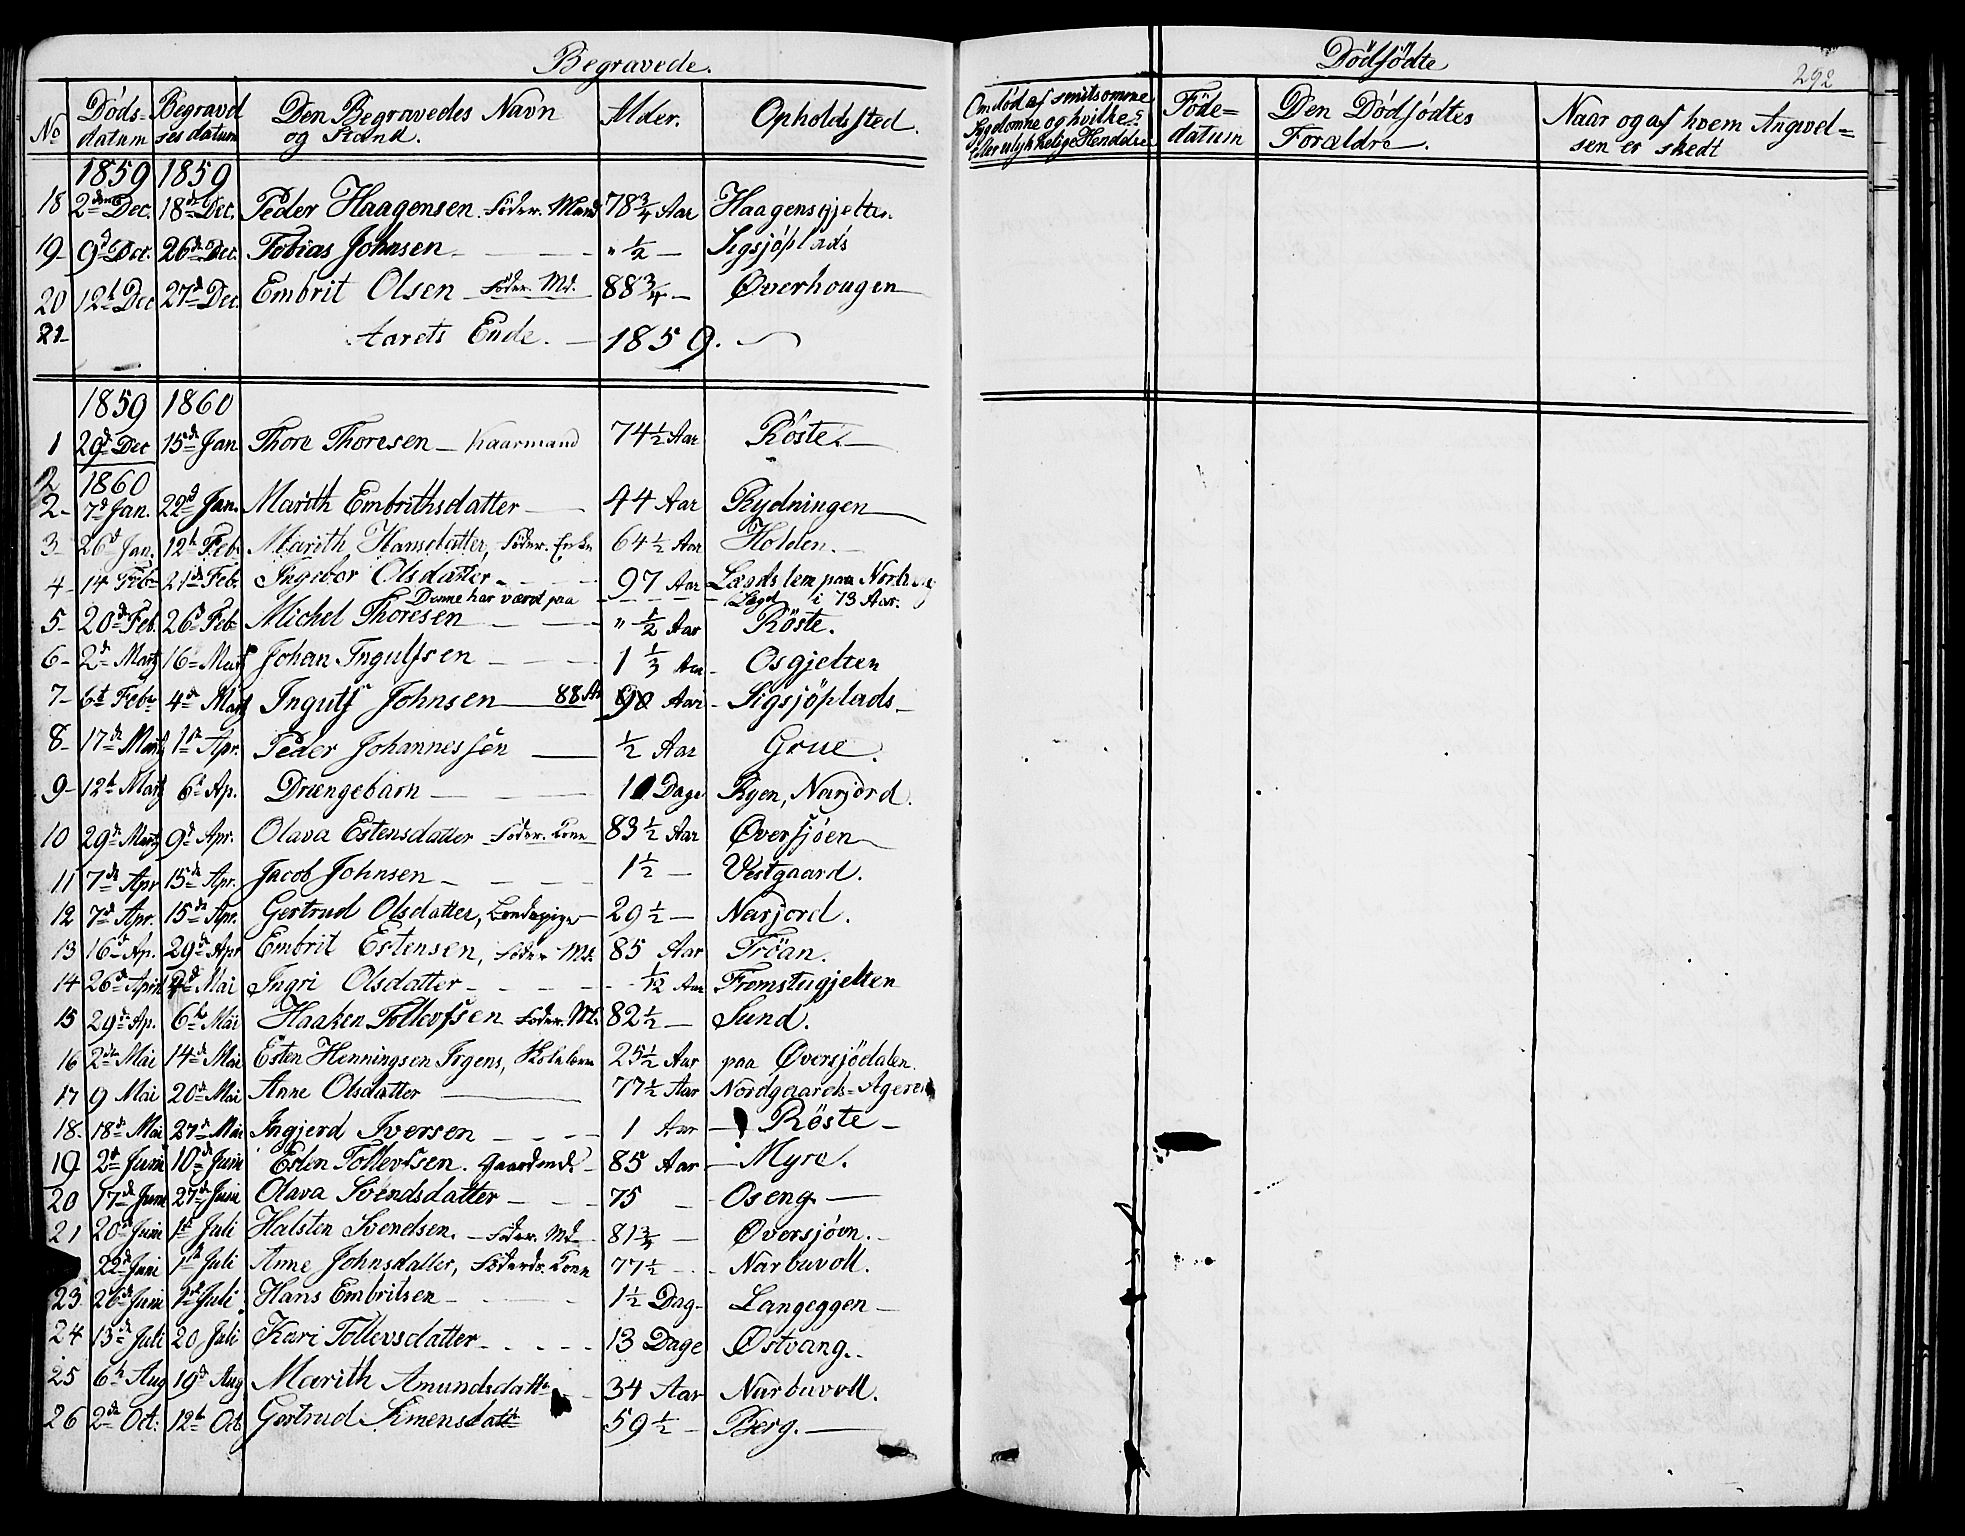 Begravede.
No Döds- datum Begravel ses datum Den Begravedes Navn og Stand. Alder. Opholdssted.
1859 1859
18 2den Dec. 18de Dec. Peder Haagensen. Föder. Mand 78 3/4 Aar Haagensgjelten.
19- 9d Dec. 26de Dec. Tobias Johnsen - " 1/2 - Sigsjöplads
20 12t Dec 27d Dec. Embrit Olsen - Föder. Md. 88 3/4 - Øverhougen
21- Aarets Ende. - 1859.
1859 1860
1 29d Dec 15de Jan Thore Thoresen - Kaarmand 74 1/2 Aar Röste. -
2 1860
2- 7d Jan. 22d Jan. Marith Embrithsdatter - 44 Aar Rydningen
3- 26d Jan. 12t Feb. Marith Hansdatter, Föder. Enke 64 1/2 Aar Holden. -
4- 14 Feb 21de Feb. Ingebor Olsdatter - 97 Aar Lægdslem paa
Denne har værd paa Lægd i 73 Aar.
5- 20d Feb. 26d Feb Michel Thoresen - " 1/2 Aar Röste.
6- 2d Martz 16 Martz Johan Ingulfsen - 1 1/3 Aar - Osgjelten
7- 6t Febr 4d Martz Ingulf Johnsen 88 Aar 90 Aar - Sigsjöplads -
8- 17de Martz 1st Apr. Peder Johannessen - 1/2 Aar Grue.
9- 12t Martz 6t Ap. Drængebarn - 10 Dage Ryen, Narjord.
10 29de Martz 9d Apr. Olava Estensdatter - Föder. Kone 83 1/2 Aar Øversjöen
11 7de Apr 15de Apr. Jacob Johnsen - 1 1/2 - Vestgaard.
12 7d Apr. 15de Apr. Gertrud Olsdatter, 29 1/2 - Narjord.
13 16d Ap. 29de Apr Embrit Estensen, Föder Md. 85 Aar Tröan.
14 26d April Mai Ingri Olsdatter - 1/12 Aar Fromstugjelten
15 29de Ap. 6te Mai Haaken Tollevssen Foder. Md. 82 1/2 - Sund.
16 2den Mai 14de Mai Esten Henningsen Irgens, 25 1/2 Aar paa Øversjödalen.
17 9 Mai 20de Mai Anne Olsdatter - 77 1/2 Aar Nordgaards-Ageren
18. 18de Mai 27de Mai Ingjerd Iversen - 1 Aar - Röste -
19 2d Juni 10de Juni Esten Tollevssen. Gaardmd - 85 Aar - Myre.
20 17de Juni 27de Juni Olava Svendsdatter - 75 - Oseng -
21 20de Juni 1st Juli Halsten Svendsen. - Föder. Md 81 3/4 - Øversjöen. -
22de Juni 1st Juli Anne Johnsdatter, Föderds. Kone 77 1/2 - Narbuvoll.
23 26de Juni Juli Hans Embritsen - 1 1/2 Dag - Langeggen -
24 13de Juli 20 Juli Kari Tollevsdatter - 13 Dage Østvang.
25 6te Aug 19d Aug Marith Amundsdatter - 34 Aar Narbuvoll.
26 2de Oct. 12te Oct Gertrud Simensdatt 59 1/2 - Berg. -
Dödfödte
292
Om död af smitsomme Sygdomme og hvilke? eller ulykkelige Hendelser Föde= datum Den Dödfödtes Foræeldre. Naar og af hvem Angivel= sen er skedt